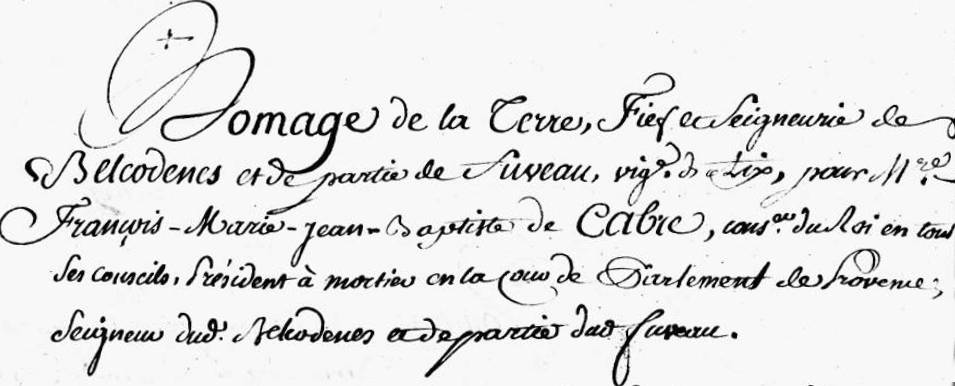 Homage de la Terre, Fief et Seigneurie de
Belcodenes et de partie de Fuveau, vig.e d'Aix, pour M.re
François-Marie-Jean-Baptiste de Cabre, cons.er du Roi en tous
ses conseils, Président à mortier en la Cour de Parlement de Provence,
Seigneur dud. Belcodenes et de partie dud. Fuveau.